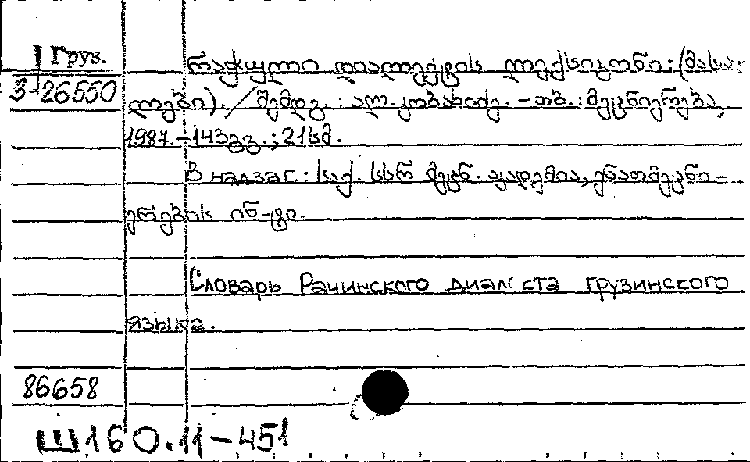 Груз.
3-26550
რაჭული დიალექტის ლექსიკონი: (მასა
ლები). / შემდგ.: ალ. კობახიძე. - თბ.: მეცნიერება,
1987. - 143გვ.; 21სმ.
В надзаг.: საქ. სსრ მეცნ. აკადემია, ენათმეცნი-
ერების ინ-ტი.
Словарь Рачинского диалекта грузинского
языка.
86658
Ш160.11-451